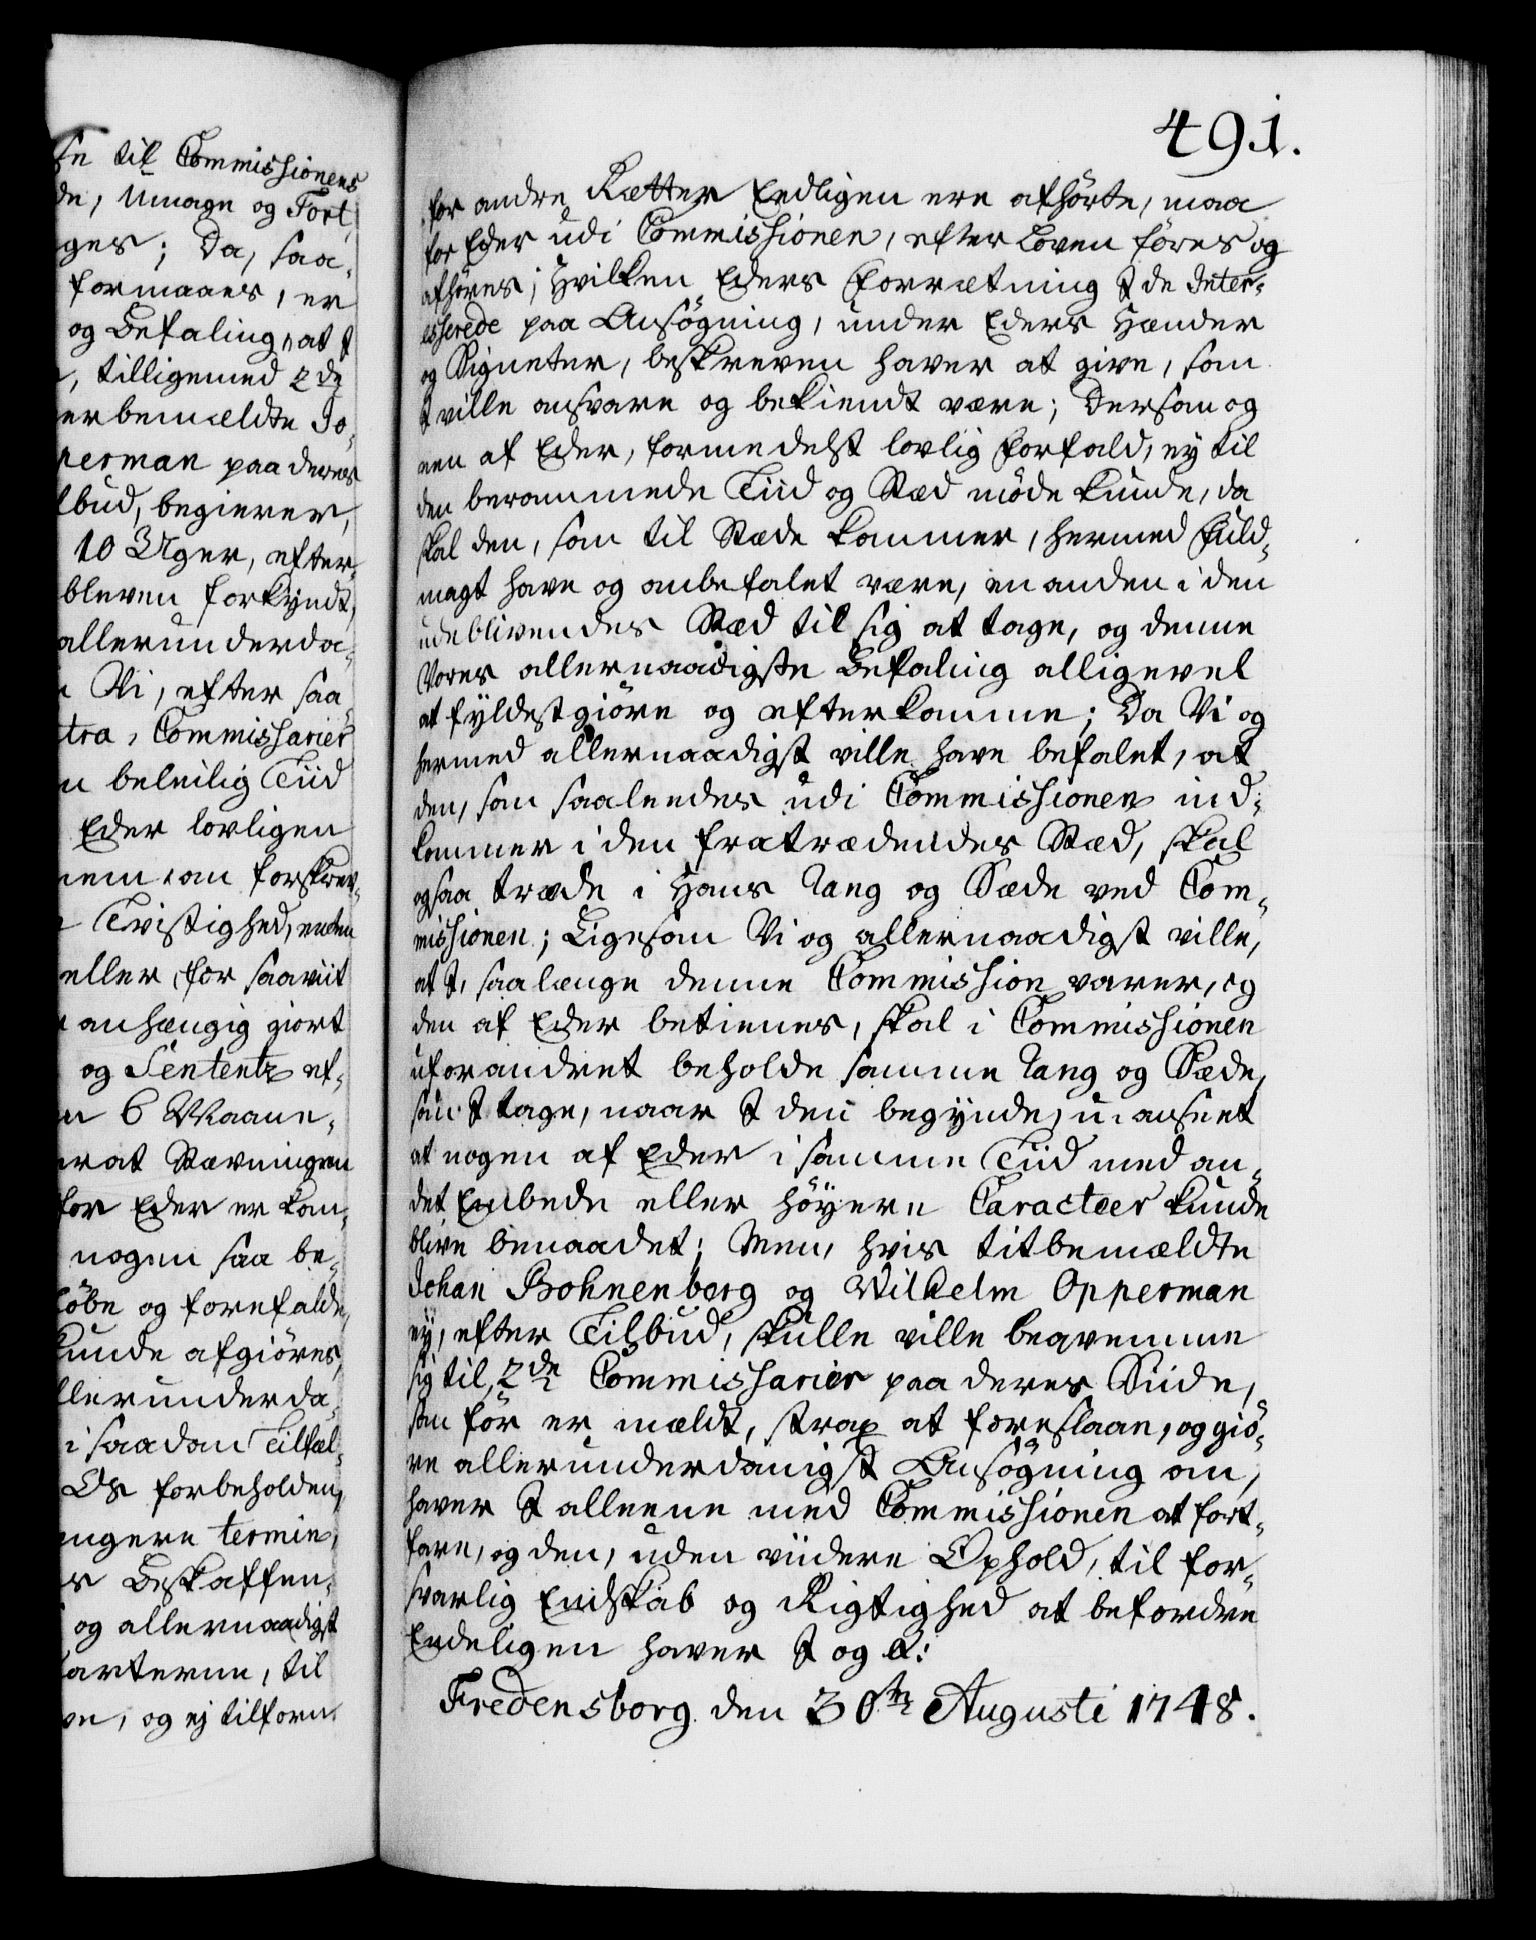 se til Commissionens
de, Umage og Fort
ges; Da, saa-
formaaes, er
og Befaling, at I
, tilligemed 2de
erbemældte Jo-
perman paa deres
lbud, begierer,
10 Uger, efter
bleven forkyndt,
allerunderda-
Vi, efter saa
tra, Commissarier
n beleilig Tiid
Eder lovligen
Tvistighed, enten
eller, for saaviit
anhængig giort
og Sententz ef-
n 6 Maane-
erat Stævningen
for Eder er kom-
nogen saa be-
löbe og forefalde,
kunde afgiöres,
llerunderda-
i saadan Tilfæl-
Os forbeholden,
ængere termin,
s Beskaffen-
og allernaadigst
parterne, til
ve, og ej tilforn
491.
for andre Rætter Eedligen ere afhörte, maa
for Eder udi Commissionen, efter Loven föres og
afhöres; Hvilken Eders Forretning I de Inter-
esserede paa Ansögning, under Eders Hænder
og Signeter, beskreven haver at give, som
I ville ansvare og bekiendt være; Dersom og
een af Eder, formedelst lovlig Forfald, ey til
den berammede Tiid og Stæd möde kunde, da
skal den, som til Stæde kommer, hermed Fuld-
magt have og anbefalet være, en anden i den
udeblivendes Stæd til sig at tage, og denne
Vores allernaadigste Befaling alligevel
at fyldestgiöre og efterkomme; Da Vi og
hermed allernaadigst ville have befalet, at
den, som saaleedes udi Commissionen ind-
kommer i den fratrædendes Stæd, skal
ogsaa træde i Hans Rang og Sæde ved Com-
missionen; Ligesom Vi og allernaadigst ville,
at I, saalænge denne Commission varer, og
den af Eder betienes, skal i Commissionen
uforandret beholde samme Rang og Sæde,
som I tage, naar I den begynde, u-anseet
at nogen af Eder i samme Tiid med an-
det Embede eller höyere Caracteer kunde
blive benaadet; Men, hvis titbemældte
Johan Bohnenberg og Wilhelm Opperman
ey, efter Tilbud, skulle ville beqvemme
sig til, 2de Commissarier paa deres Siide,
som för er mældt, strax at foreslaae, og giö-
re allerunderdanigst Ansögning om,
haver I alleene med Commissionen at fort-
fare, og den, uden viidere Ophold, til for-
svarlig Endskab og Rigtighed at befordre
Endeligen haver I og &:
Fredensborg den 30te Augusti 1748.